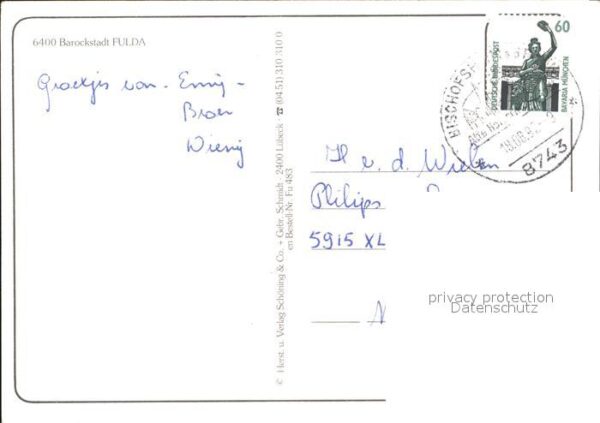 6400 Barockstadt FULDA
Groetjes van - Enny -
Bram
Wieny
© Herst. u. Verlag Schöning & Co. + Gebr. Schmidt - 2400 Lübeck · ☎ (04 51) 310 310 0
en Bestell-Nr. Fu 483
60
DEUTSCHE BUNDESPOST
BAVARIA MÜNCHEN
BISCHOFSH
8743
v. d. Wielen
Philips
5915 XL
N
privacy protection
Datenschutz